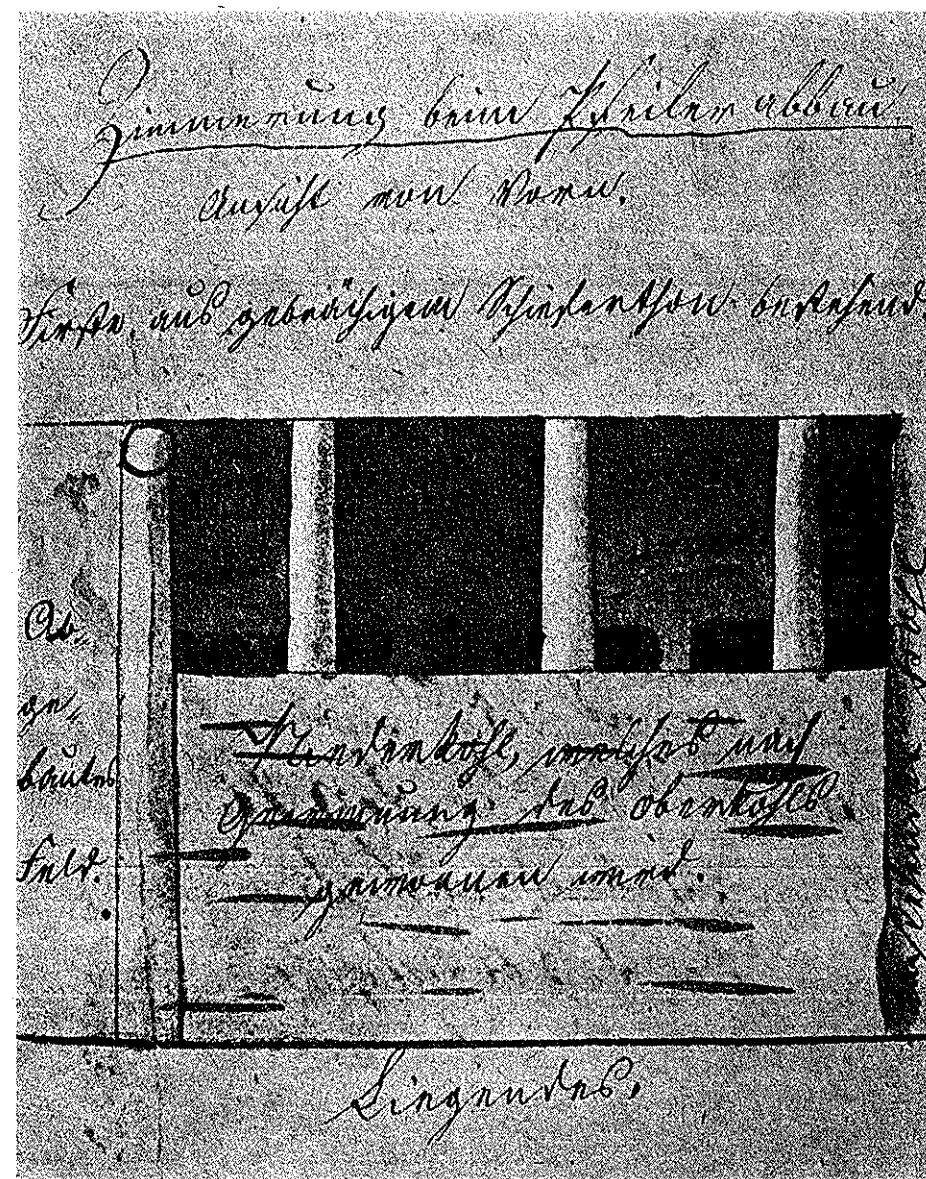 Zimmerung beim Pfeilerabbau.
Ansicht von Vorn.
Firste, aus gebrächigem Schieferthon bestehend.
Ab-
ge-
bautes
Feld.
Niederkohl, welches nach
Gewinnung des Oberkohls
gewonnen wird.
Liegendes.